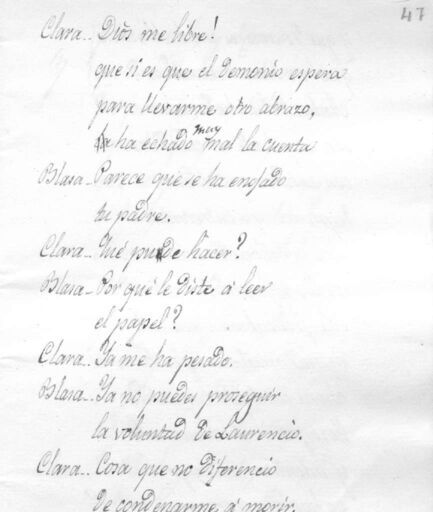 47
Clara.. Dios me libre!
que si es que el demonio espera
para llevarme otro abrazo,
ha echado muy mal la cuenta
Blasa.. Parece que se ha enojado
tu padre.
Clara.. Qué puede hacer?
Blasa.. Por qué le diste á leer
el papel?
Clara.. Ya me ha pesado.
Blasa.. Ya no puedes proseguir
la voluntad de Laurencio.
Clara.. Cosa que no diferencio
de condenarme á morir.